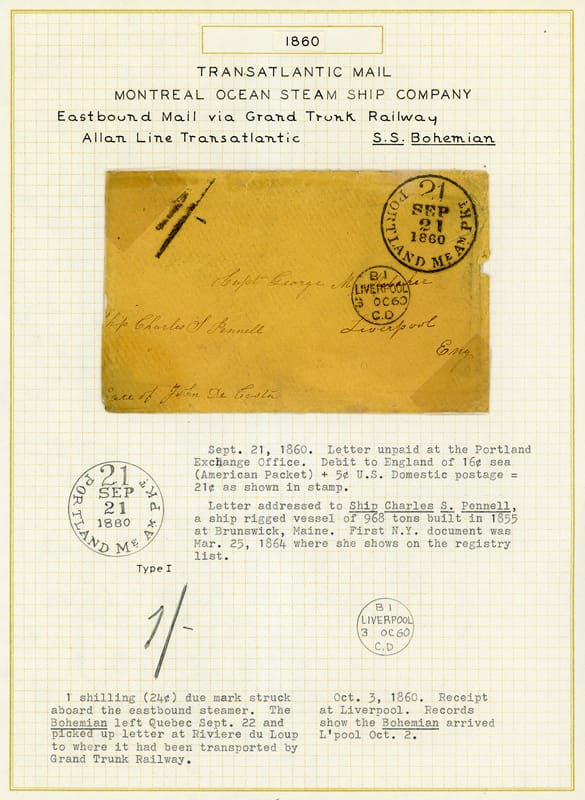 1860
TRANSATLANTIC MAIL
MONTREAL OCEAN STEAM SHIP COMPANY
Eastbound Mail via Grand Trunk Railway
Allan Line Transatlantic S.S. Bohemian
21
SEP
21
1860
PORTLAND ME AM PKT
Capt George M
B I
LIVERPOOL
OC60
C.D
Ship Charles S Pennell
Liverpool
Eng
Care of John De Costa
Sept. 21, 1860. Letter unpaid at the Portland
Exchange Office. Debit to England of 16¢ sea
(American Packet) + 5¢ U.S. Domestic postage =
21¢ as shown in stamp.
Letter addressed to Ship Charles S. Pennell,
a ship rigged vessel of 968 tons built in 1855
at Brunswick, Maine. First N.Y. document was
Mar. 25, 1864 where she shows on the registry
list.
21
SEP
21
1860
PORTLAND ME AM PKT
Type I
1/-
B I
LIVERPOOL
3 OC60
C.D
1 shilling (24¢) due mark struck
aboard the eastbound steamer. The
Bohemian left Quebec Sept. 22 and
picked up letter at Riviere du Loup
to where it had been transported by
Grand Trunk Railway.
Oct. 3, 1860. Receipt
at Liverpool. Records
show the Bohemian arrived
L'pool Oct. 2.